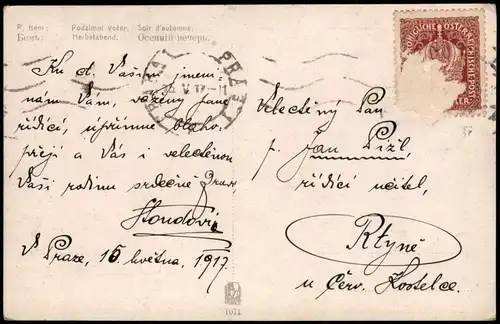 R. Bém: Podzimní večer. Soir d'automne.
Бемъ: Herbstabend. Осенній вечеръ.
Ku d. Vašim jmen.
nám Vám, vážený pane
řídící, upřímně blaho-
přeji a Vás i velectěnou
Vaši rodinu srdečně
V Praze, 16. května 1917.
1071
PRAG
V.17
KAISERLICHE KÖNIGLICHE ÖSTERREICHISCHE POST
Velectěný Pan
p. Jan Pižl
řídící učitel,
Rtyně
u Červ. Kostelce.